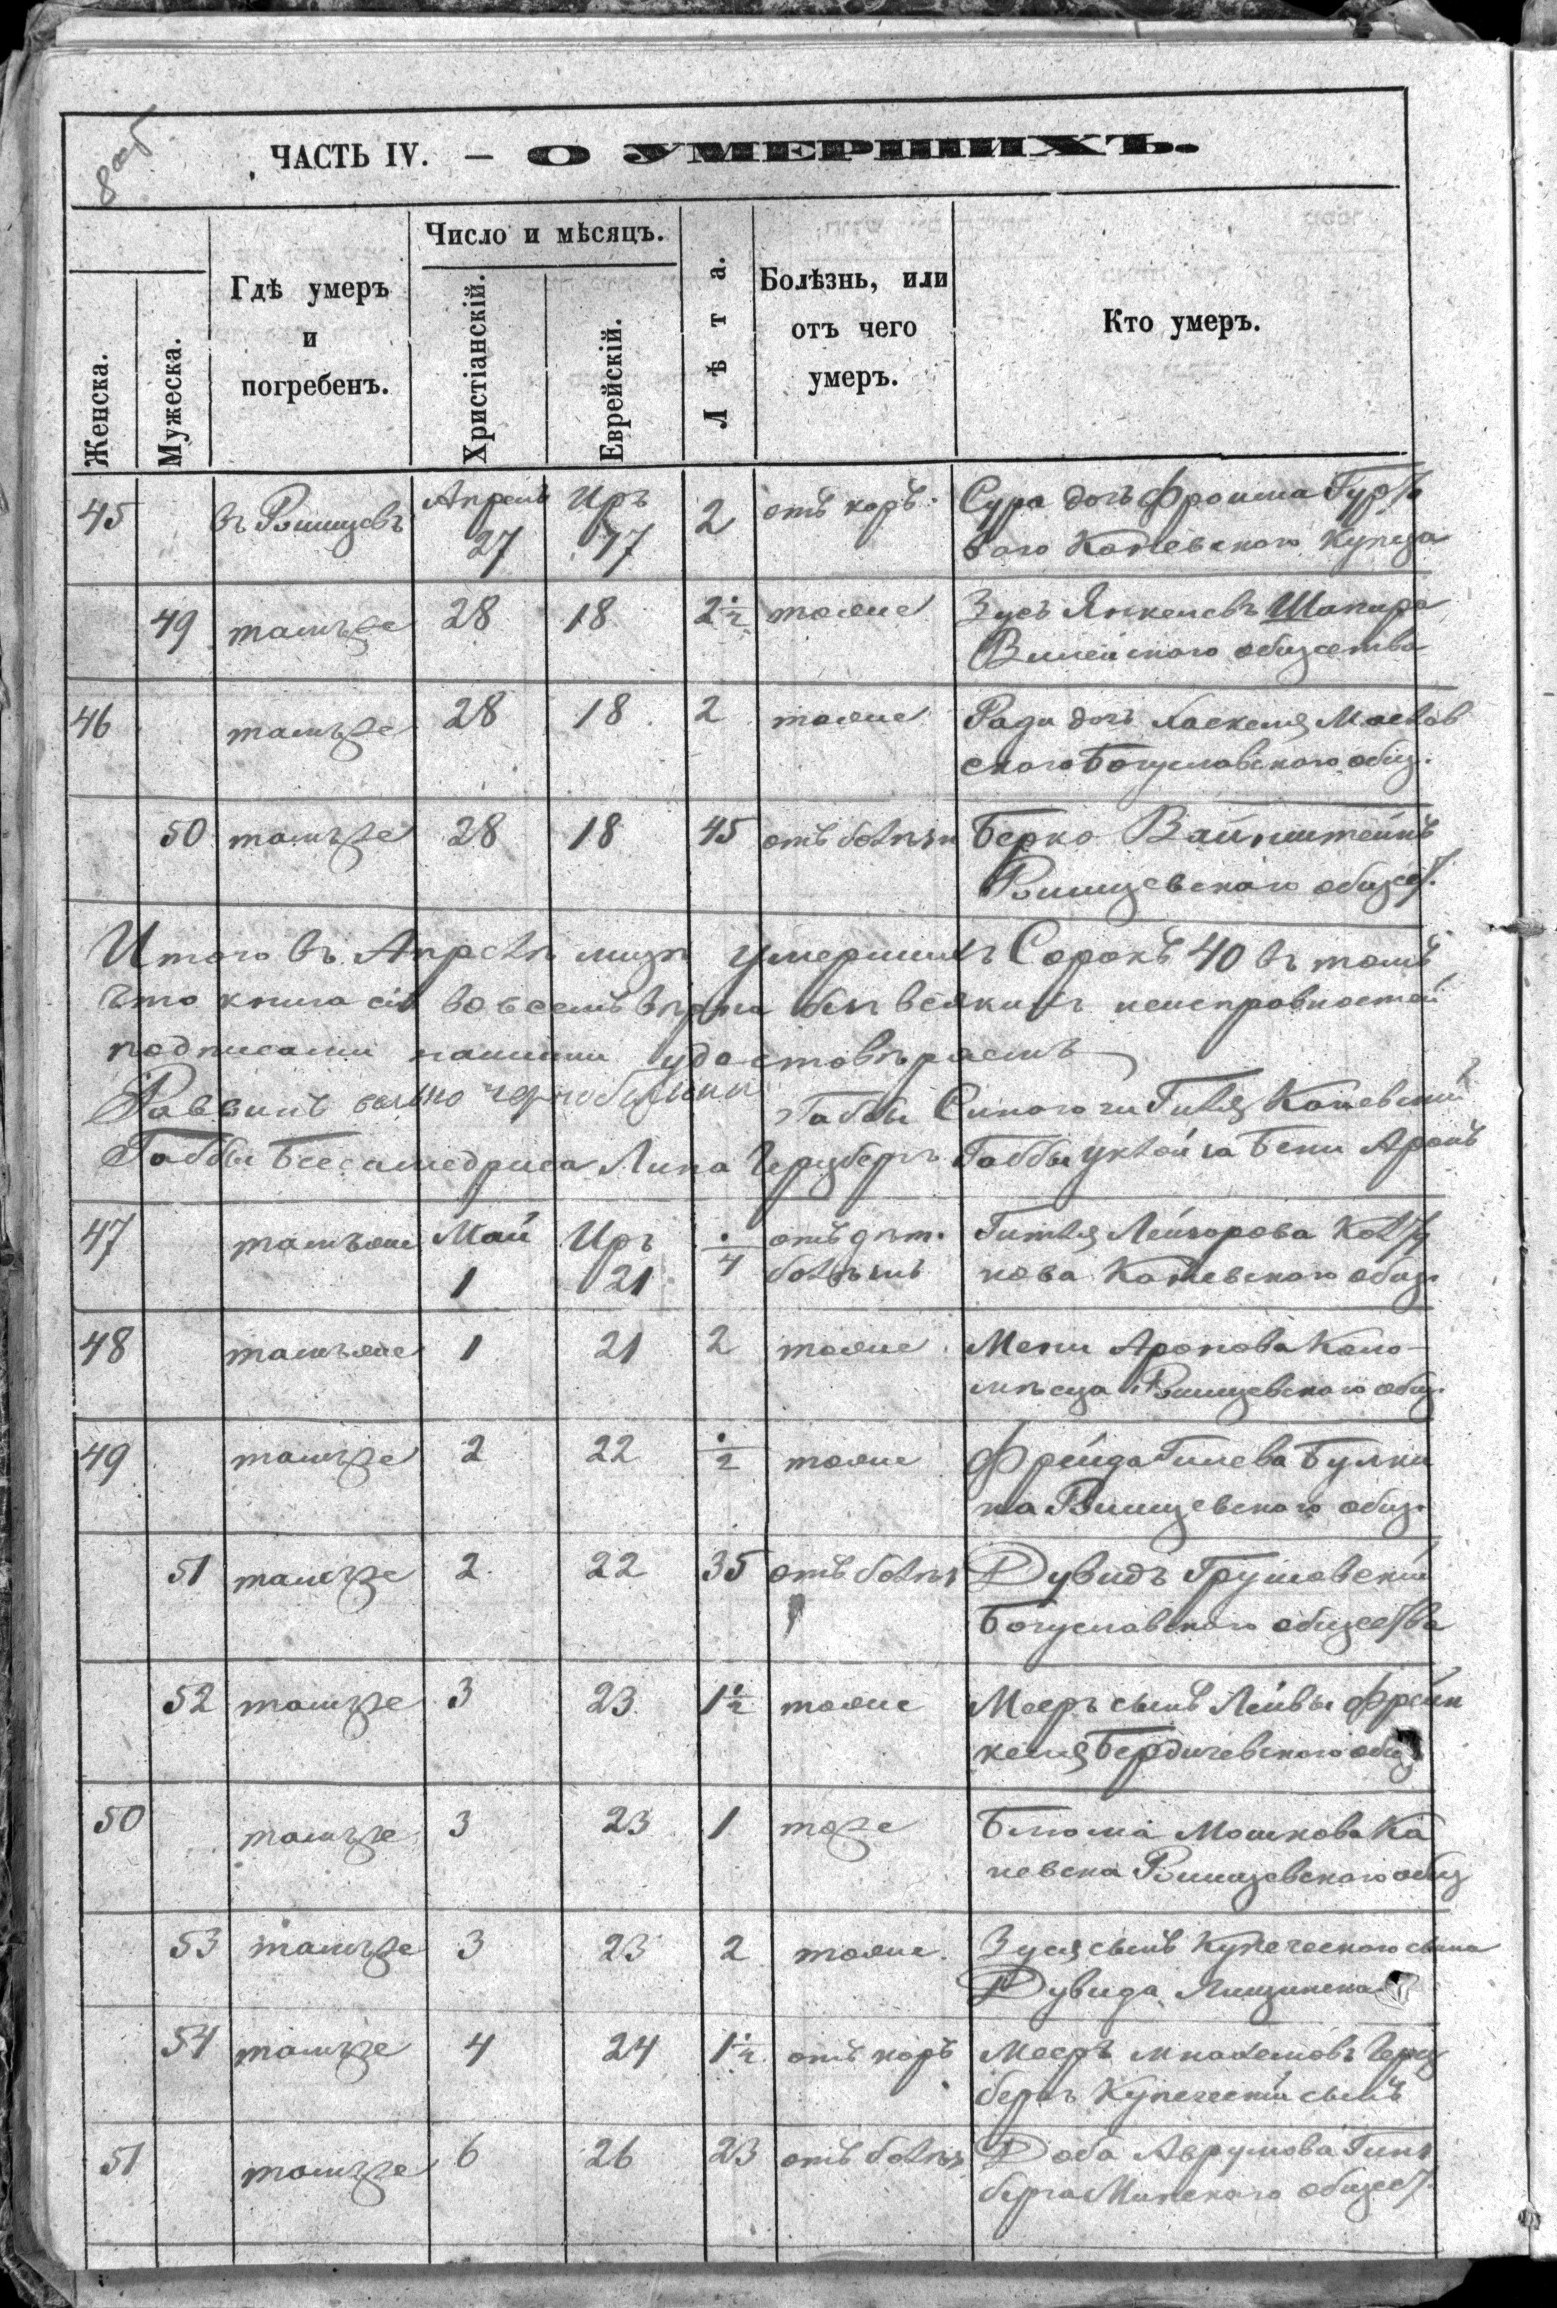 8 об
ЧАСТЬ IV. — О УМЕРШИХЪ.
Женска.
Мужеска.
Гдѣ умеръ
и
погребенъ.
Число и мѣсяцъ.
Христіанскій.
Еврейскій.
Лѣта.
Болѣзнь, или
отъ чего
умеръ.
Кто умеръ.
45 въ Ржищевъ Апрель 27 Иръ 17 2 отъ коръ Сура дочъ Фроима
Каневского Купца
49 тамъже 28 18 2 1/2 тоже Зусь Янкелевъ Шапира
общества
46 тамъже 28 18 2 тоже дочъ Хаскеля
ского Богуславского общ.
50 тамъже 28 18 45 отъ болѣзн Берко Вайнштейнъ
Ржищевского общест.
Итого въ Апрелѣ умершихъ Сорокъ 40 въ томъ
что книга сія во всемъ вѣрна безъ всякихъ неисправностей
подписами нашими удостовѣряемъ
Раввинъ
Габбы Синагоги Каневскій
Габбы Бесамедриса Липа Герцбергъ Габбы Бени Аронъ
47 тамъже Май 1 Иръ 21 1/4 отъ дѣт. Гитля Лейзорова
болѣзнъ нова Каневского общ.
48 тамъже 1 21 2 тоже Мени Аронова Коло-
мѣеца Ржищевского общ.
49 тамъже 2 22 1/2 тоже Фрейда Гилева Булки
на Ржищевского общ.
51 тамъже 2 22 35 отъ болѣз Дувидъ Грушовскій
Богуславского общества
52 тамъже 3 23 1 1/2 тоже Мееръ сынъ Лейвы Френ
келя Бердичевского общ
50 тамъже 3 23 1 тоже Блюма Мошкова Ка
невска Ржищевского общ
53 тамъже 3 23 2 тоже Зуся сынъ Купеческого сына
Дувида Лищинска
54 тамъже 4 24 1 1/2 отъ коръ Мееръ Герц
бергъ Купеческій сынъ
51 тамъже 6 26 23 отъ болѣз Доба Аврумова Гинз
берга Минского общест.